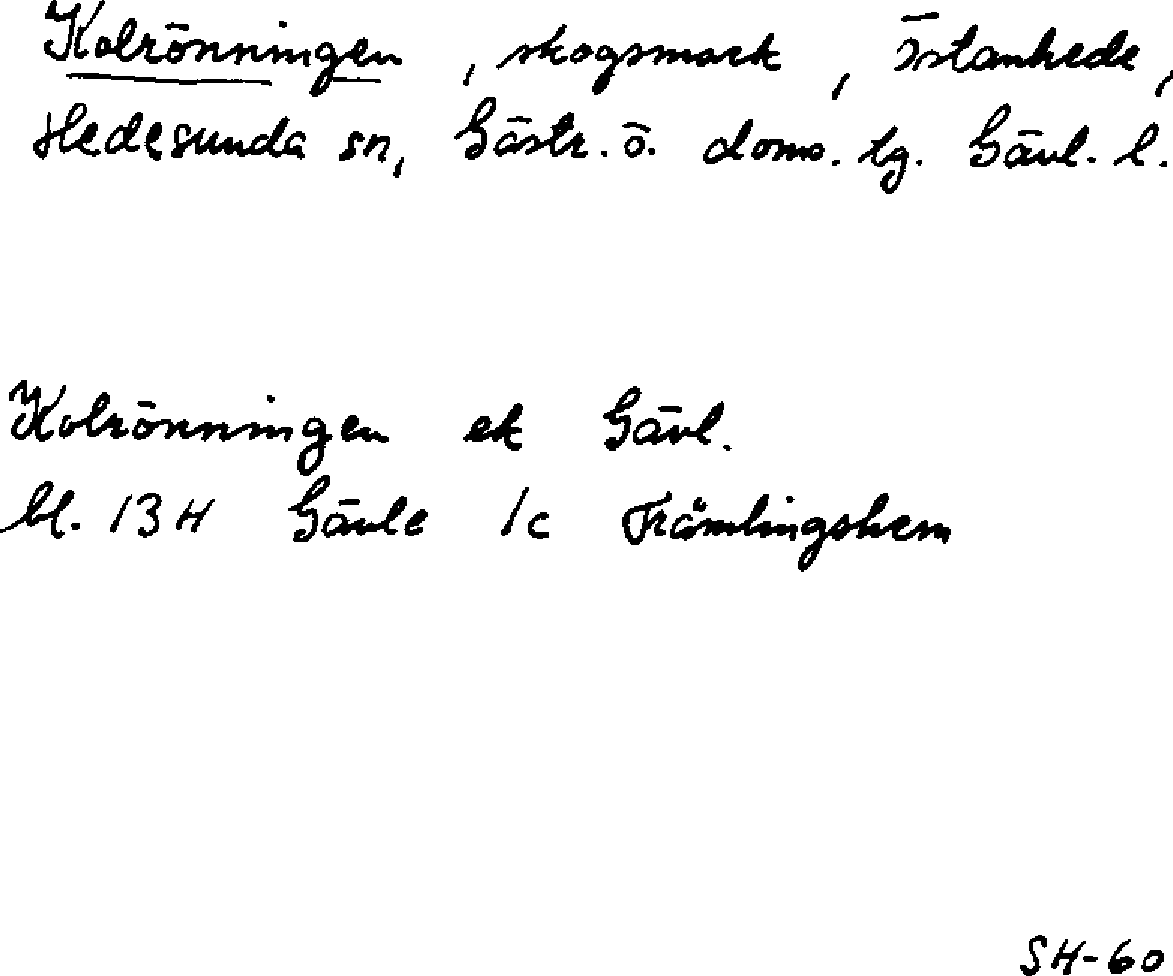 Kolrönningen, skogsmark, Östanhede,
Hedesunda sn, Gästr. ö. doms. tg. Gävl. l.
Kolrönningen ek Gävl.
bl. 13H Gävle 1c Främlingshem
SH-60